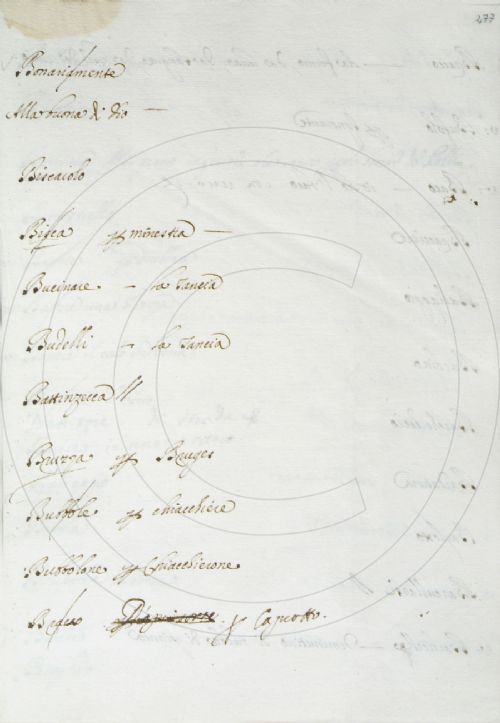 277
Bonariamente
Alla buona di dio —
Biscaiolo
Bisca p minestra —
Bucinare – la Tancia
Budelli – la Tancia
Battinzecca //
Bruzza p Bruges
Bubbole p chiacchiere
Bubbolone p Chiacchierone
p Capotto.